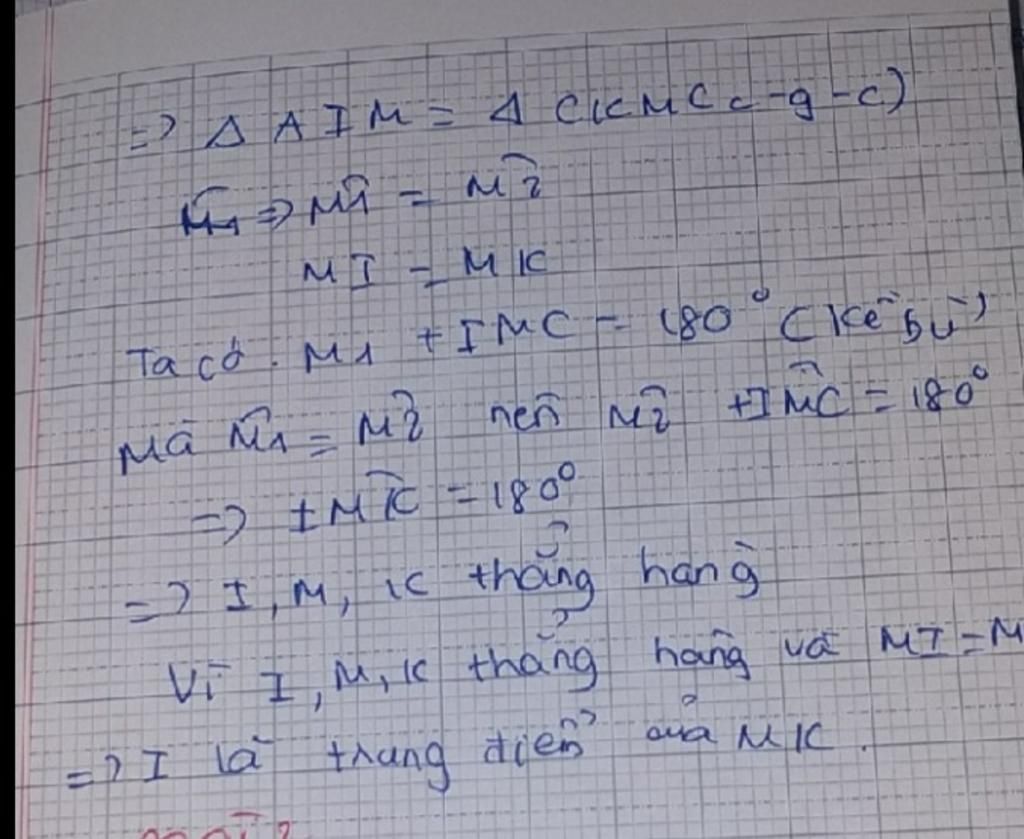 => Δ AIM = Δ CKM (c-g-c)
=> M̂1 = M̂2
MI = MK
Ta có: M1 + IMC = 180° (kề bù)
Mà M̂1 = M̂2 nên M̂2 + IM̂C = 180°
=> IM̂K = 180°
=> I, M, K thẳng hàng
Vì I, M, K thẳng hàng và MI = M
=> I là trung điểm của MK.